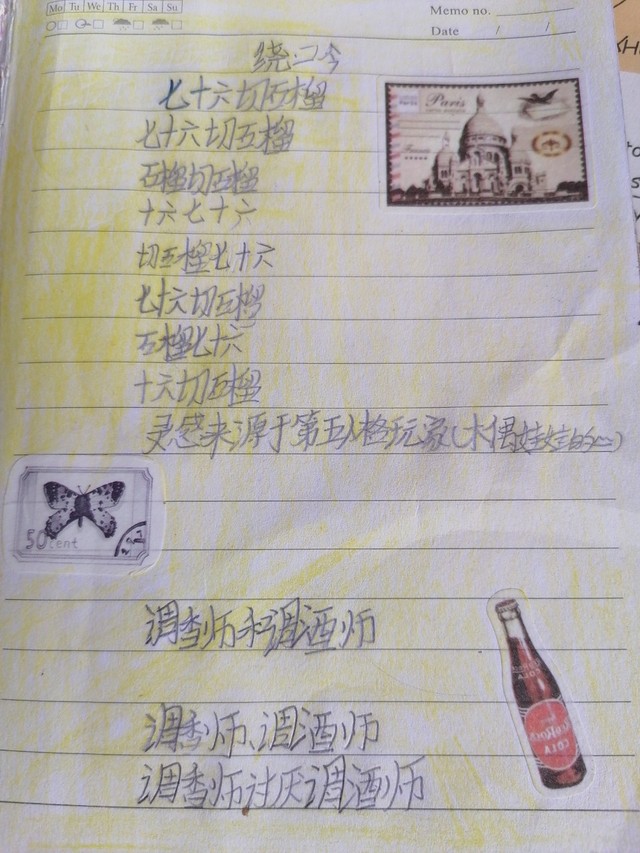 Mo Tu We Th Fr Sa Su
Memo no.
Date / /
绕口令
七十六切石榴
Paris
七十六切石榴
石榴切石榴
十六七十六
切石榴七十六
七十六切石榴
石榴七十六
十六切石榴
灵感来源于第五人格玩家(木偶娃娃的…)
50cent
调香师和调酒师
调香师、调酒师
COLA
调香师讨厌调酒师